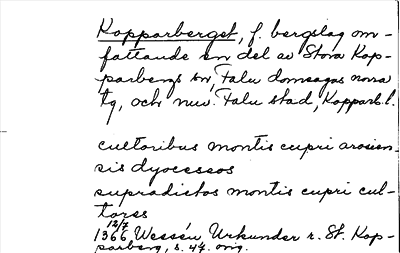 Kopparberget, f. bergslag om-
fattande en del av Stora Kop-
parbergs sn, Falu domsagas norra
tg, och nuv. Falu stad, Kopparb. l.
cultoribus montis cupri arosien-
sis dyocessos
supradictos montis cupri cul-
tores
12/7
1366 Wessén Urkunder r. St. Kop-
parberg, s. 47. orig.